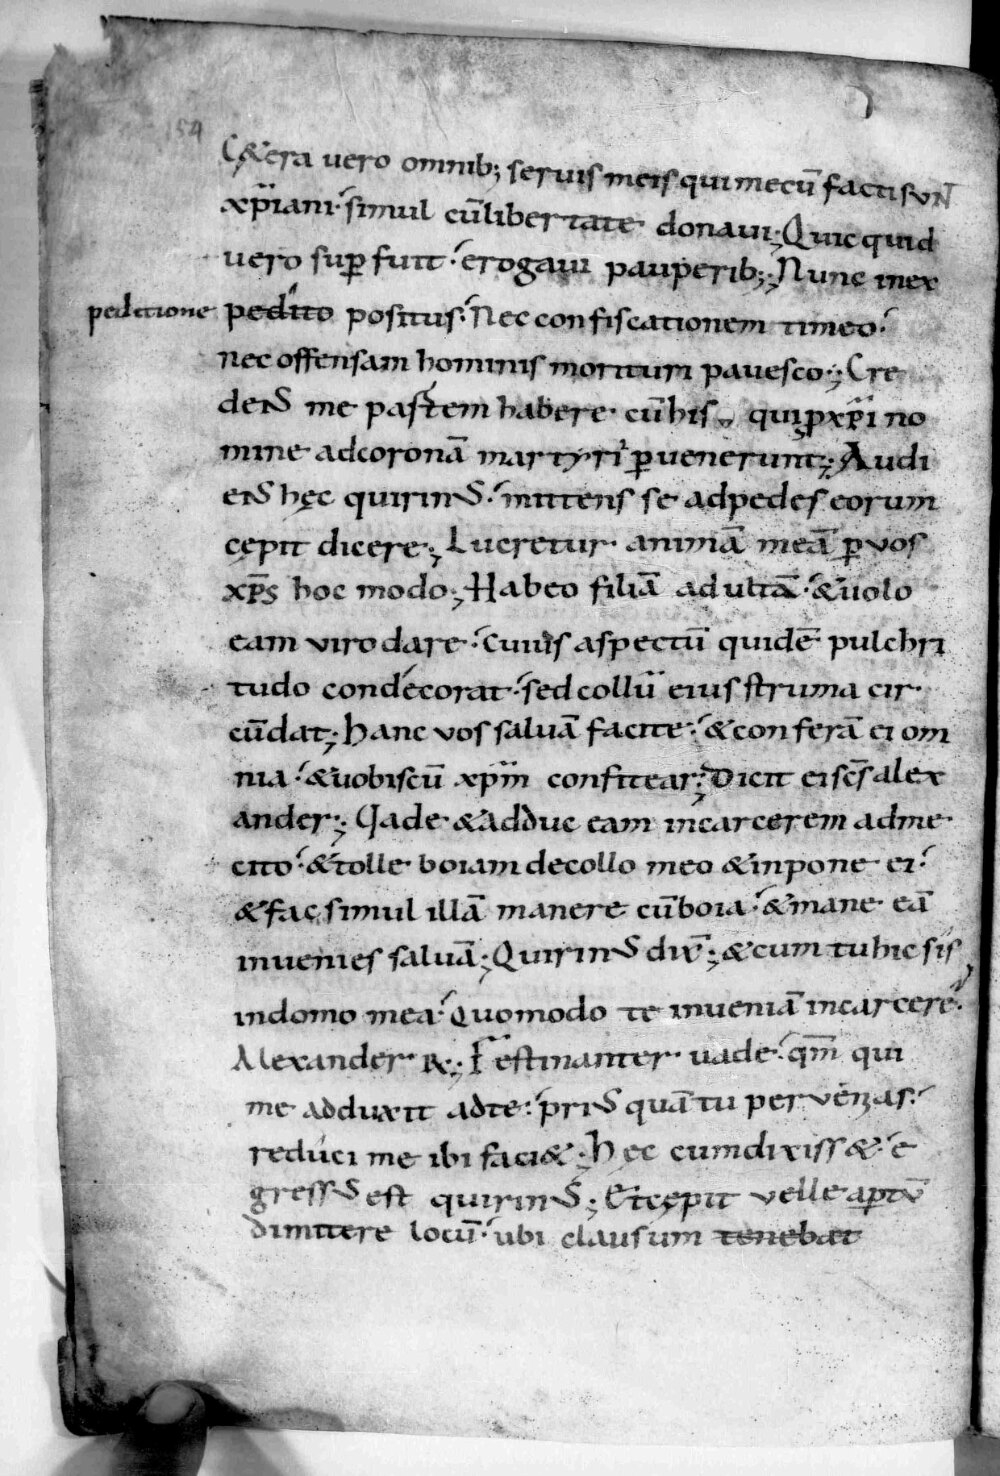 154
C&era uero omnib; seruis meis qui mecū facti sunt
xp̄iani simul cū libertate donaui; Quicquid
uero sup̄ fuit erogaui pauperib;; Nunc in ex
peditione pedito positus. Nec confiscationem timeo.
nec offensam hominis morituri pauesco; Cre
deris me partem habere cū his qui p xp̄i no
mine ad coronā martyrii p̄uenerunt; Audi
ens hęc quirinus. mittens se ad pedes eorum
cępit dicere; Lucretur animā meā p̄ uos
xp̄s hoc modo; Habeo filiā adultā. & uolo
eam uiro dare. Cuius aspectū quidē pulchri
tudo condecorat. sed collū eius struma cir
cūdat; hanc uos saluā facite. & conferā ei om
nia. & uobiscū xp̄m confitear; Dicit ei sc̄s alex
ander; Uade & adduc eam in carcerem ad me
cito. & tolle boiam de collo meo & inpone ei.
& fac simul illā manere cū boia. & mane eā
inuenies saluā; Quirinus dix̄; & cum tu hic sis
in domo mea. Quomodo te inueniā in carcere.
Alexander R; Festinanter uade. qm̄ qui
me adduxit ad te. prius quā tu peruenias.
reduci me ibi faci&; hęc cum dixiss& e
gressus est quirinus; Et cępit uelle aptū
dimittere locū. ubi clausum tenebat